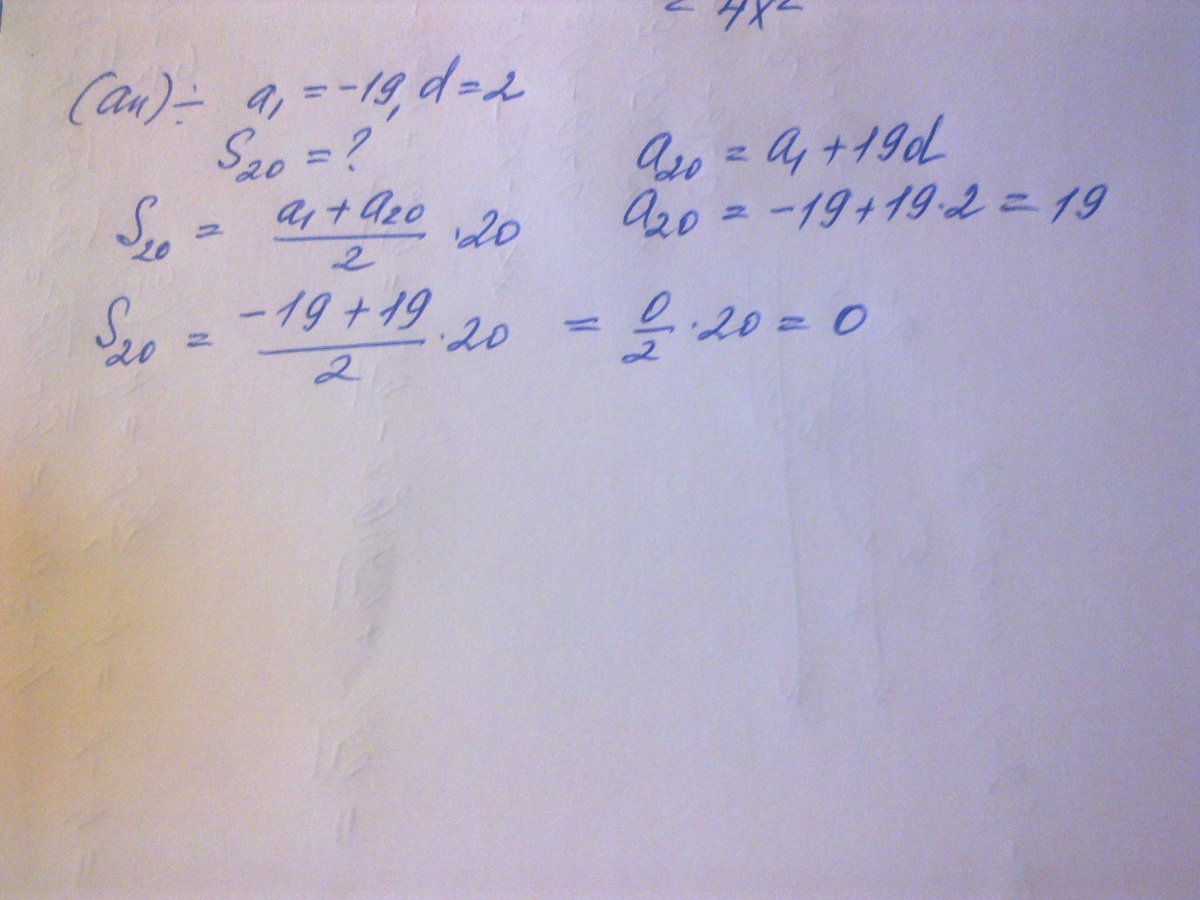 = 4x²
(an) ÷ a₁ = -19, d = 2
S₂₀ = ?
a₂₀ = a₁ + 19d
S₂₀ = (a₁ + a₂₀)/2 · 20
a₂₀ = -19 + 19 · 2 = 19
S₂₀ = (-19 + 19)/2 · 20 = 0/2 · 20 = 0